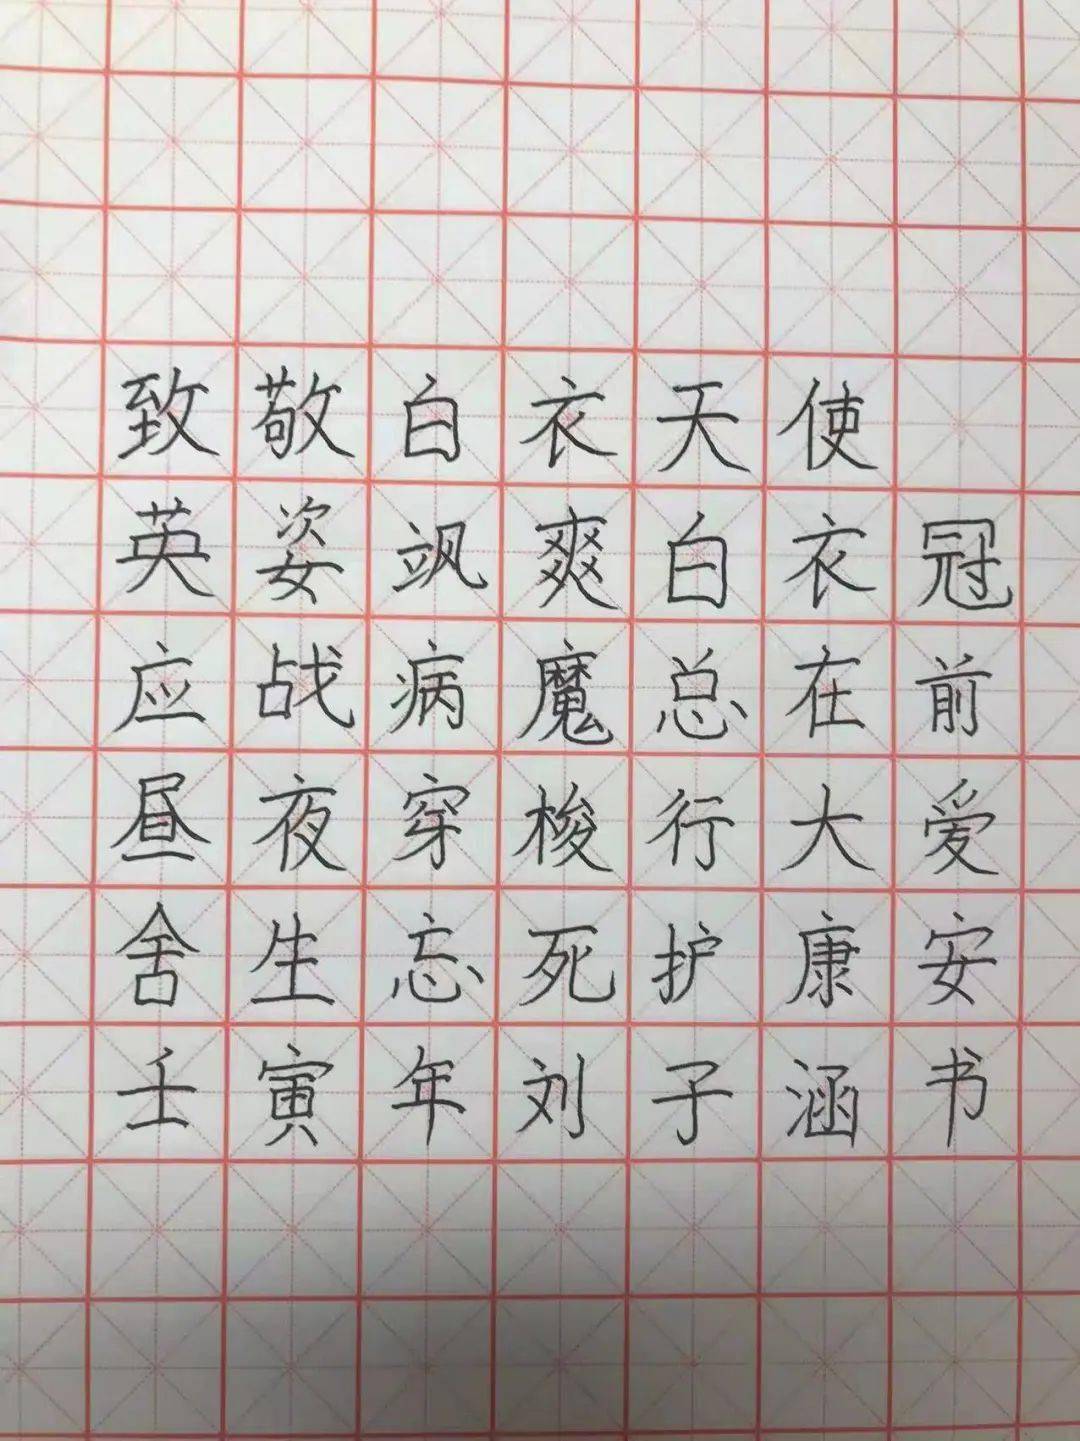 致敬白衣天使
英姿飒爽白衣冠
应战病魔总在前
昼夜穿梭行大爱
舍生忘死护康安
壬寅年刘子涵书